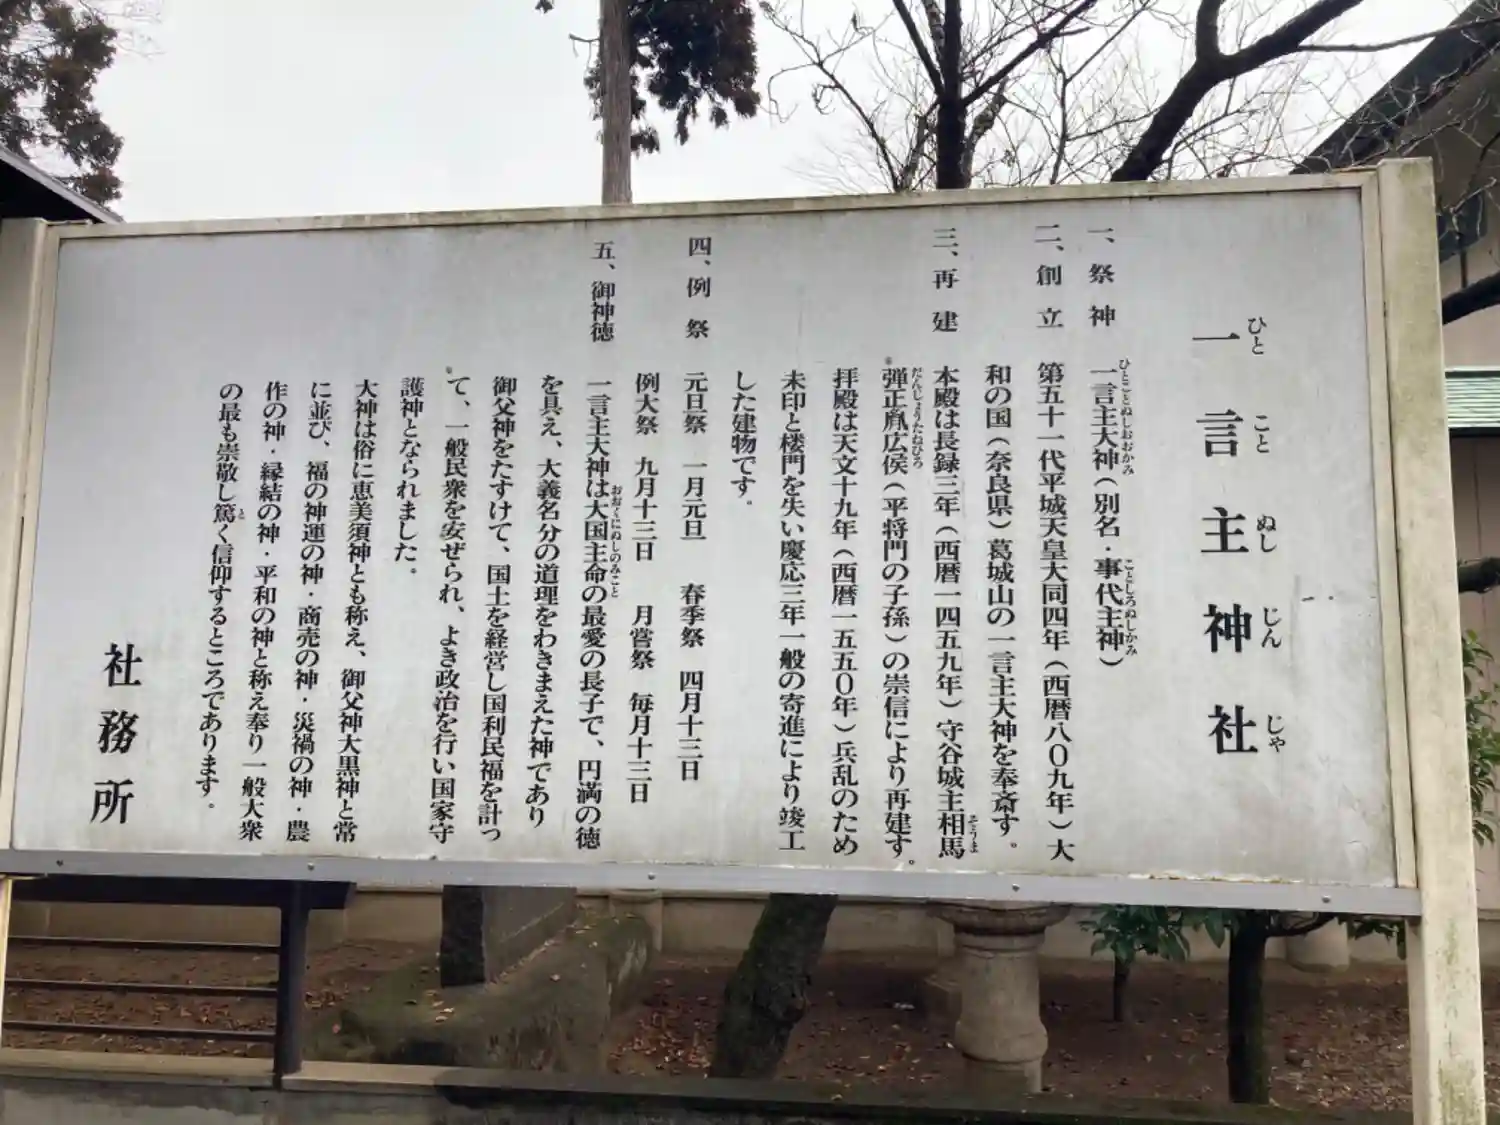 一言主神社
ひとことぬしじんじゃ
一、祭神
一言主大神（別名・事代主神）
ひとことぬしおおかみ
ことしろぬしかみ
二、創立
第五十一代平城天皇大同四年（西暦八〇九年）大
和の国（奈良県）葛城山の一言主大神を奉斎す。
三、再建
本殿は長録三年（西暦一四五九年）守谷城主相馬
そうま
弾正胤広侯（平将門の子孫）の崇信により再建す。
だんじょうたねひろ
拝殿は天文十九年（西暦一五五〇年）兵乱のため
未印と楼門を失い慶応三年一般の寄進により竣工
した建物です。
四、例祭
元旦祭 一月元旦 春季祭 四月十三日
例大祭 九月十三日 月嘗祭 毎月十三日
五、御神徳
一言主大神は大国主命の最愛の長子で、円満の徳
おおくにぬしのみこと
を具え、大義名分の道理をわきまえた神であり
御父神をたすけて、国土を経営し国利民福を計っ
て、一般民衆を安ぜられ、よき政治を行い国家守
護神となられました。
大神は俗に恵美須神とも称え、御父神大黒神と常
に並び、福の神運の神・商売の神・災禍の神・農
作の神・縁結の神・平和の神と称え奉り一般大衆
の最も崇敬し篤く信仰するところであります。
と
社務所